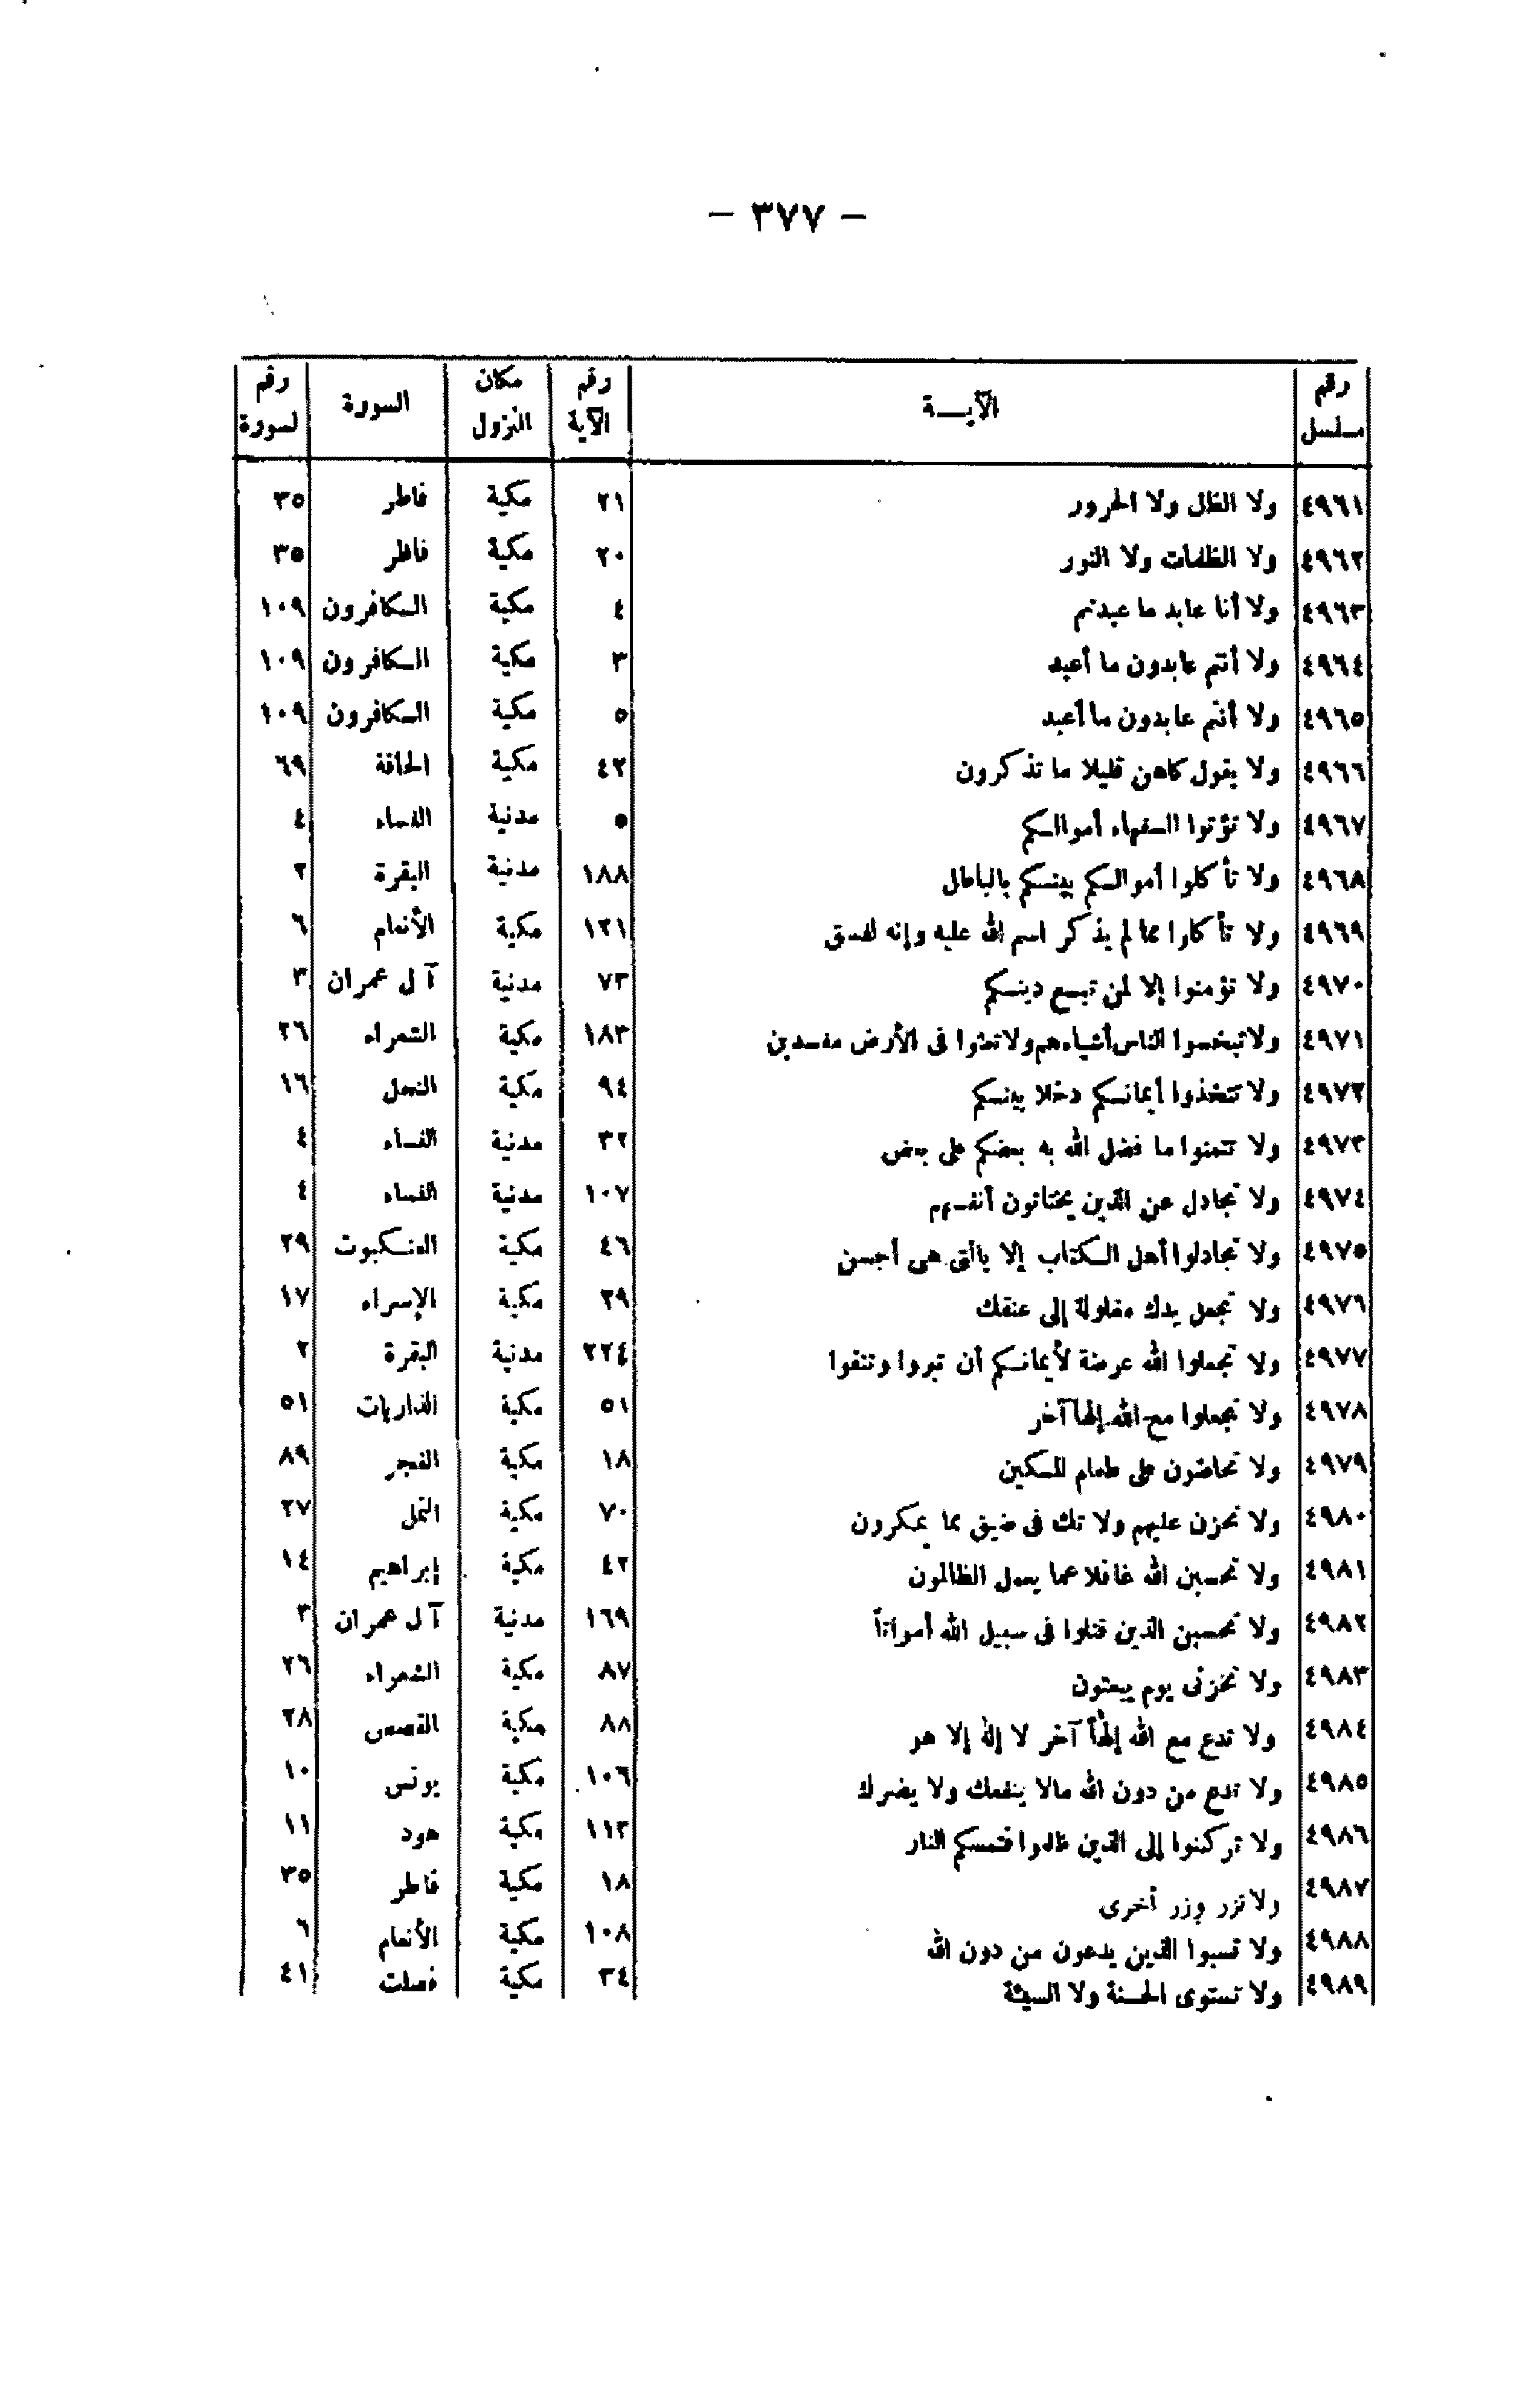 — ٣٧٧ —
رقم مسلسل | الآيــة | رقم الآية | مكان النزول | السورة | رقم لسورة
٤٩٦١ | ولا الظل ولا الحرور | ٢١ | مكية | فاطر | ٣٥
٤٩٦٢ | ولا الظلمات ولا النور | ٢٠ | مكية | فاطر | ٣٥
٤٩٦٣ | ولا أنا عابد ما عبدتم | ٤ | مكية | الكافرون | ١٠٩
٤٩٦٤ | ولا أنتم عابدون ما أعبد | ٣ | مكية | الكافرون | ١٠٩
٤٩٦٥ | ولا أنتم عابدون ما أعبد | ٥ | مكية | الكافرون | ١٠٩
٤٩٦٦ | ولا يقول كاهن قليلا ما تذكرون | ٤٢ | مكية | الحاقة | ٦٩
٤٩٦٧ | ولا تؤتوا السفهاء أموالكم | ٥ | مدنية | النساء | ٤
٤٩٦٨ | ولا تأكلوا أموالكم بينكم بالباطل | ١٨٨ | مدنية | البقرة | ٢
٤٩٦٩ | ولا تأكلوا مما لم يذكر اسم الله عليه وإنه لفسق | ١٢١ | مكية | الأنعام | ٦
٤٩٧٠ | ولا تؤمنوا إلا لمن تبع دينكم | ٧٣ | مدنية | آل عمران | ٣
٤٩٧١ | ولا تبخسوا الناس أشياءهم ولا تعثوا فى الأرض مفسدين | ١٨٣ | مكية | الشعراء | ٢٦
٤٩٧٢ | ولا تتخذوا أيمانكم دخلا بينكم | ٩٤ | مكية | النحل | ١٦
٤٩٧٣ | ولا تتمنوا ما فضل الله به بعضكم على بعض | ٣٢ | مدنية | النساء | ٤
٤٩٧٤ | ولا تجادل عن الذين يختانون أنفسهم | ١٠٧ | مدنية | النساء | ٤
٤٩٧٥ | ولا تجادلوا أهل الكتاب إلا بالتى هى أحسن | ٤٦ | مكية | العنكبوت | ٢٩
٤٩٧٦ | ولا تجعل يدك مغلولة إلى عنقك | ٢٩ | مكية | الإسراء | ١٧
٤٩٧٧ | ولا تجعلوا الله عرضة لأيمانكم أن تبروا وتتقوا | ٢٢٤ | مدنية | البقرة | ٢
٤٩٧٨ | ولا تجعلوا مع الله إلهاً آخر | ٥١ | مكية | الذاريات | ٥١
٤٩٧٩ | ولا تحاضون على طعام المسكين | ١٨ | مكية | الفجر | ٨٩
٤٩٨٠ | ولا تحزن عليهم ولا تك فى ضيق مما يمكرون | ٧٠ | مكية | النمل | ٢٧
٤٩٨١ | ولا تحسبن الله غافلا عما يعمل الظالمون | ٤٢ | مكية | إبراهيم | ١٤
٤٩٨٢ | ولا تحسبن الذين قتلوا فى سبيل الله أمواتاً | ١٦٩ | مدنية | آل عمران | ٣
٤٩٨٣ | ولا تخزنى يوم يبعثون | ٨٧ | مكية | الشعراء | ٢٦
٤٩٨٤ | ولا تدع مع الله إلهاً آخر لا إله إلا هو | ٨٨ | مكية | القصص | ٢٨
٤٩٨٥ | ولا تدع من دون الله مالا ينفعك ولا يضرك | ١٠٦ | مكية | يونس | ١٠
٤٩٨٦ | ولا تركنوا إلى الذين ظلموا فتمسكم النار | ١١٣ | مكية | هود | ١١
٤٩٨٧ | ولا تزر وزر أخرى | ١٨ | مكية | فاطر | ٣٥
٤٩٨٨ | ولا تسبوا الذين يدعون من دون الله | ١٠٨ | مكية | الأنعام | ٦
٤٩٨٩ | ولا تستوى الحسنة ولا السيئة | ٣٤ | مكية | فصلت | ٤١